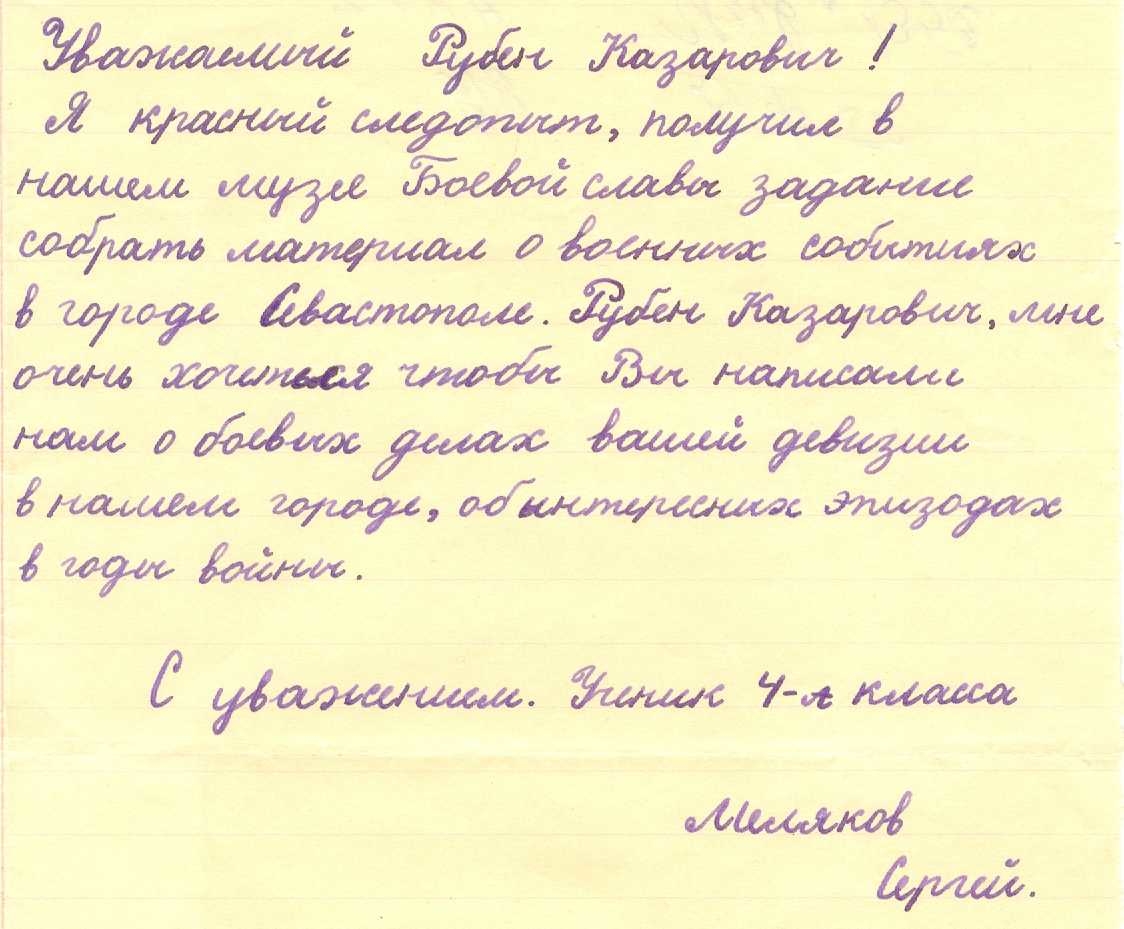 Уважаемый Рубен Казарович!
Я красный следопыт, получил в
нашем музее Боевой славы задание
собрать материал о военных событиях
в городе Севастополе. Рубен Казарович, мне
очень хочется чтобы Вы написали
нам о боевых делах вашей девизии
в нашем городе, об интересных эпизодах
в годы войны.
С уважением. Ученик 4-А класса
Меляков
Сергей.